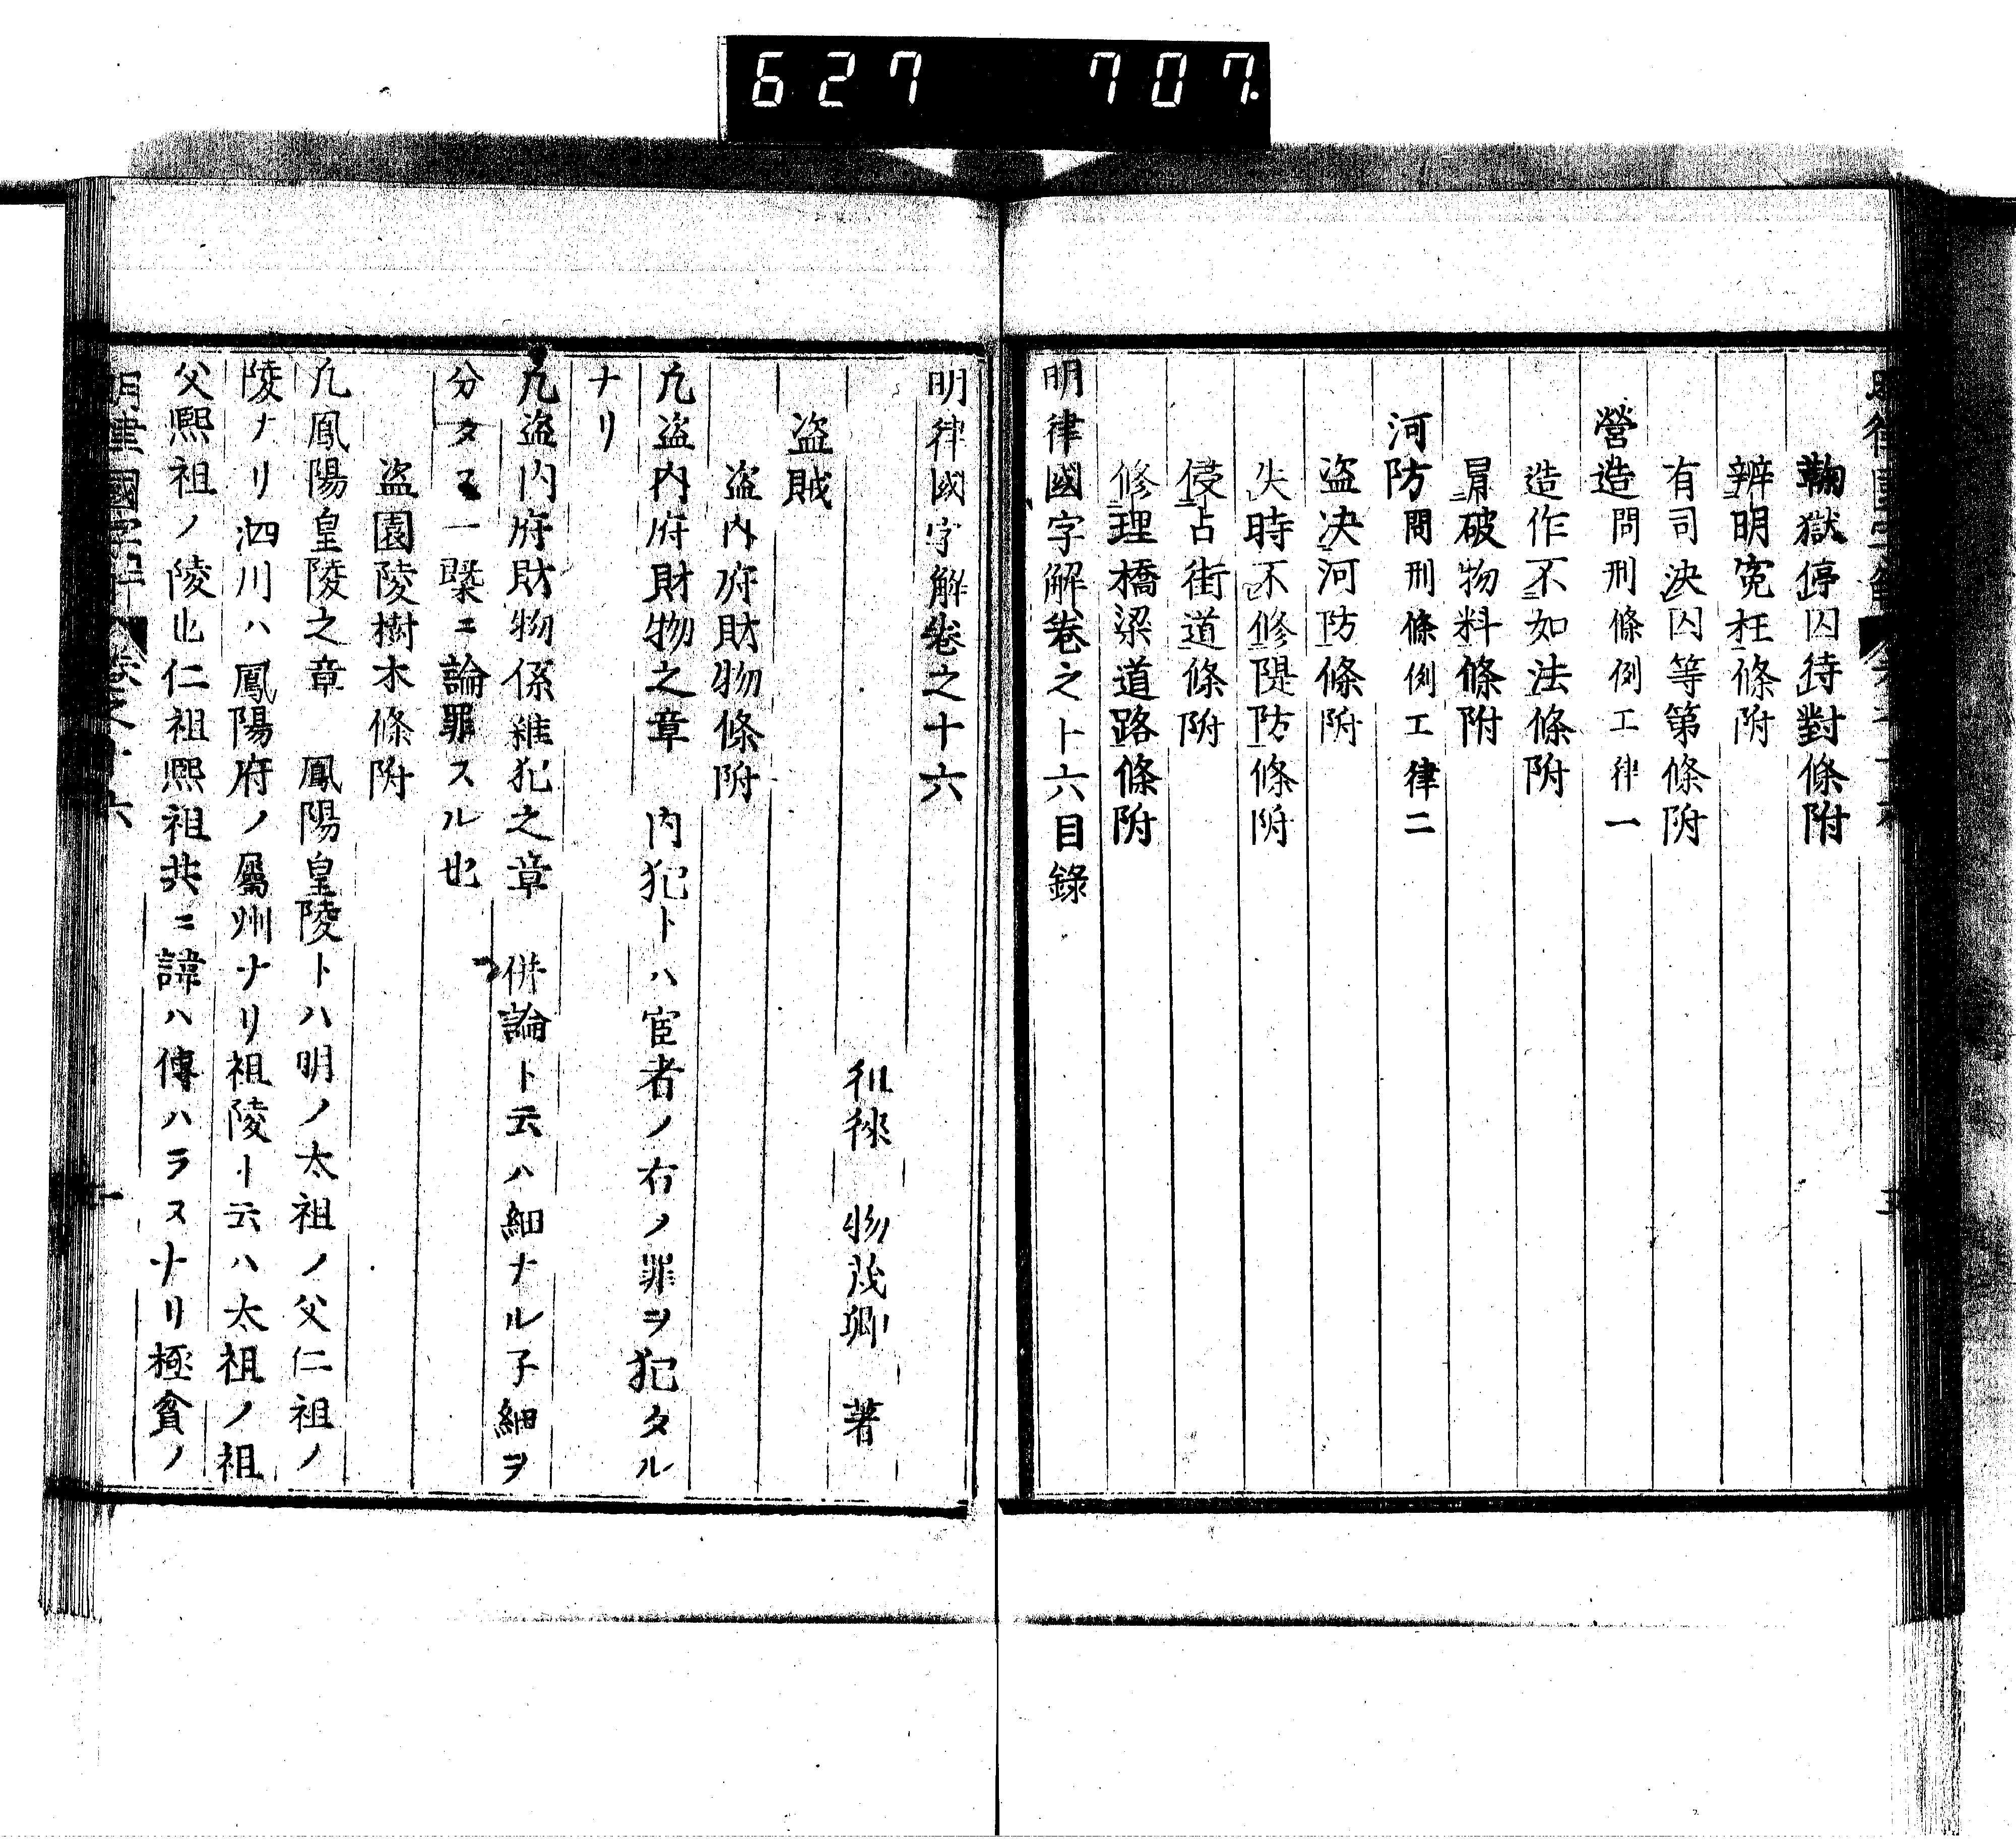 627 707
鞠獄停囚待對條附
辨明寃枉條附
有司決囚等第條附
營造問刑條例工律一
造作不如法條附
冐破物料條附
河防問刑條例工律二
盜决河防條附
失時不修隄防條附
侵占街道條附
修理橋梁道路條附
明律國字解卷之十六目錄
明律國字解卷之十六
徂徠 物茂卿 著
盜賊
盜內府財物條附
凢盜內府財物之章 内犯トハ宦者ノ右ノ罪ヲ犯タル
ナリ
凢盜内府財物係雜犯之章 併論ト云ハ細ナル子細ヲ
分タス一槩ニ論罪スル也
盜園陵樹木條附
凢鳳陽皇陵之章 鳳陽皇陵トハ明ノ太祖ノ父仁祖ノ
陵ナリ泗川ハ鳳陽府ノ屬州ナリ祖陵ト云ハ太祖ノ祖
父熙祖ノ陵也仁祖熙祖共ニ諱ハ傳ハラスナリ極貧ノ
明律國字解 卷之十六 一